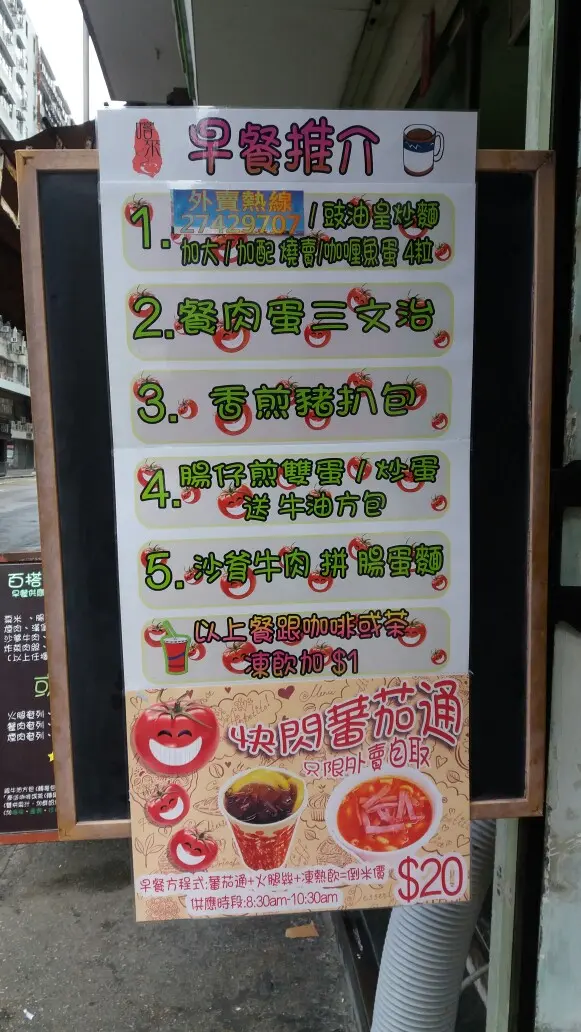 早餐推介
外賣熱線
1. 27429707 / 豉油皇炒麵
加大/加配 燒賣/咖喱魚蛋 4粒
2. 餐肉蛋三文治
3. 香煎豬扒包
4. 腸仔煎雙蛋 / 炒蛋
送 牛油方包
5. 沙爹牛肉 拼 腸蛋麵
以上餐跟咖啡或茶
凍飲加 $1
快閃蕃茄通
只限外賣自取
早餐方程式:蕃茄通+火腿+凍熱飲=倒米價
$20
供應時段:8:30am-10:30am
百搭
早餐供應